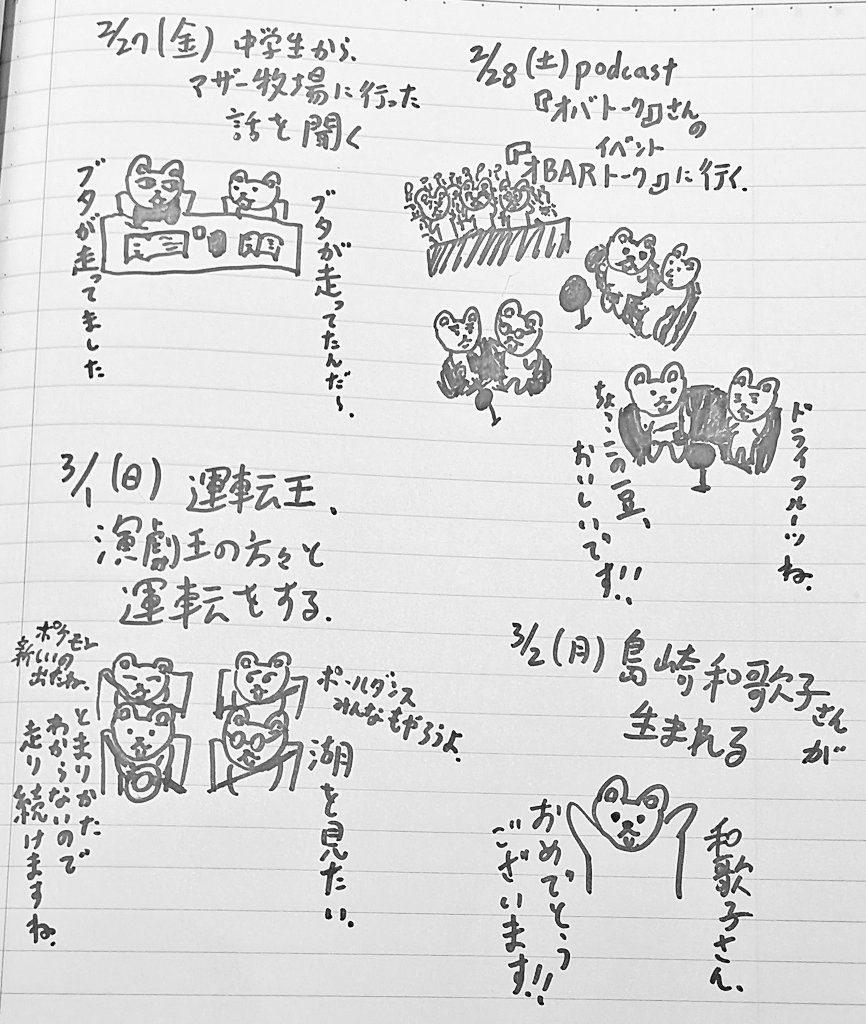 2/27(金) 中学生から、
マザー牧場に行った
話を聞く
ブタが走ってたんだ〜。
ブタが走ってました
2/28(土) podcast
『オバトーク』さんの
イベント
『オBARトーク』に行く。
ドライフルーツね。
ちょっこの豆、
おいしいです!!
3/1(日) 運転王、
演劇王の方々と
運転をする。
ポケモン
新しいの
出たね。
ポールダンス
みんなもやろうよ。
湖を見たい。
とまりかた
わからないので
走り続けますね。
3/2(月) 島崎和歌子さんが
生まれる
和歌子さん、
おめでとう
ございます!!